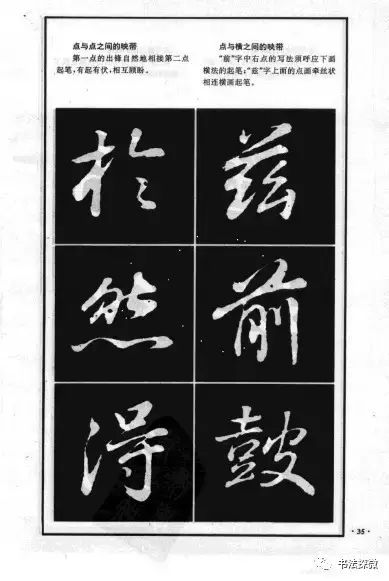 点与点之间的映带
第一点的出锋自然地相接第二点
起笔，有起有伏，相互顾盼。
点与横之间的映带
“前”字中右点的写法须呼应下画
横法的起笔；“兹”字上面的点画牵丝状
相连横画起笔。
於 兹
然 前
得 鼓
·35·
书法探微